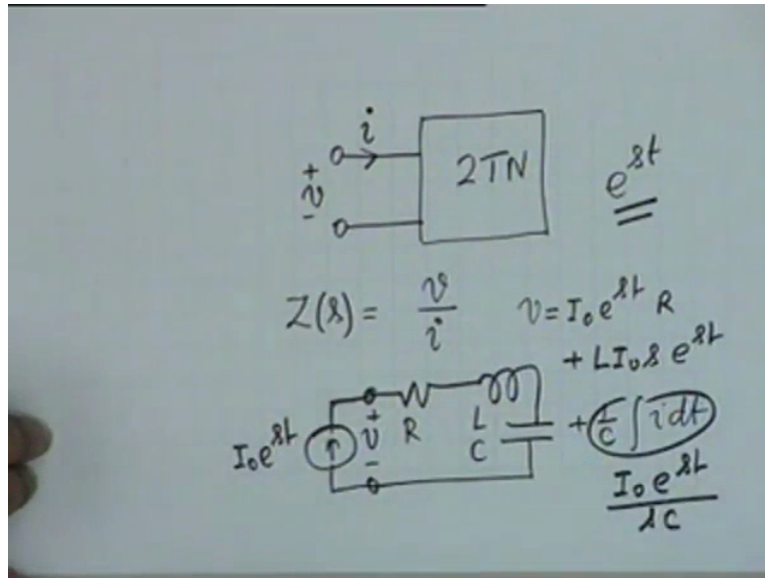 i
+
v
-
2TN
e^{st}
Z(s) = v/i
v = I₀e^{st} R
+ LI₀s e^{st}
+ 1/C ∫ i dt
I₀e^{st}/sC
I₀e^{st}
↑
+
v
-
R
L
C